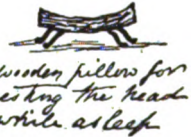 wooden pillow for
resting the head
while asleep